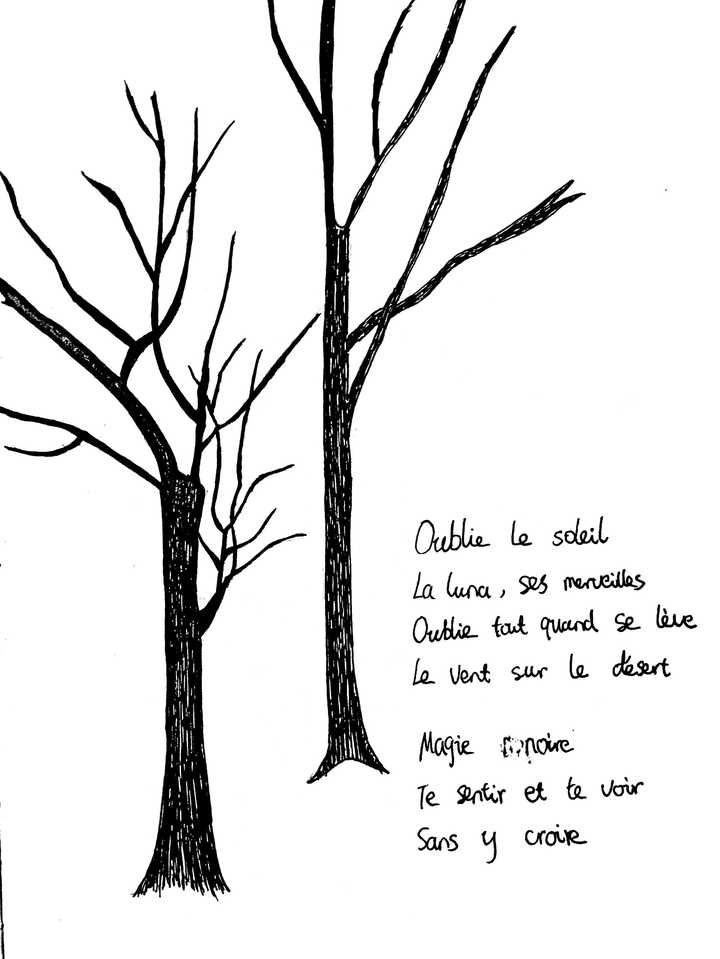 Oublie le soleil
La luna, ses merveilles
Oublie tout quand se lève
Le vent sur le désert
Magie noire
Te sentir et te voir
Sans y croire